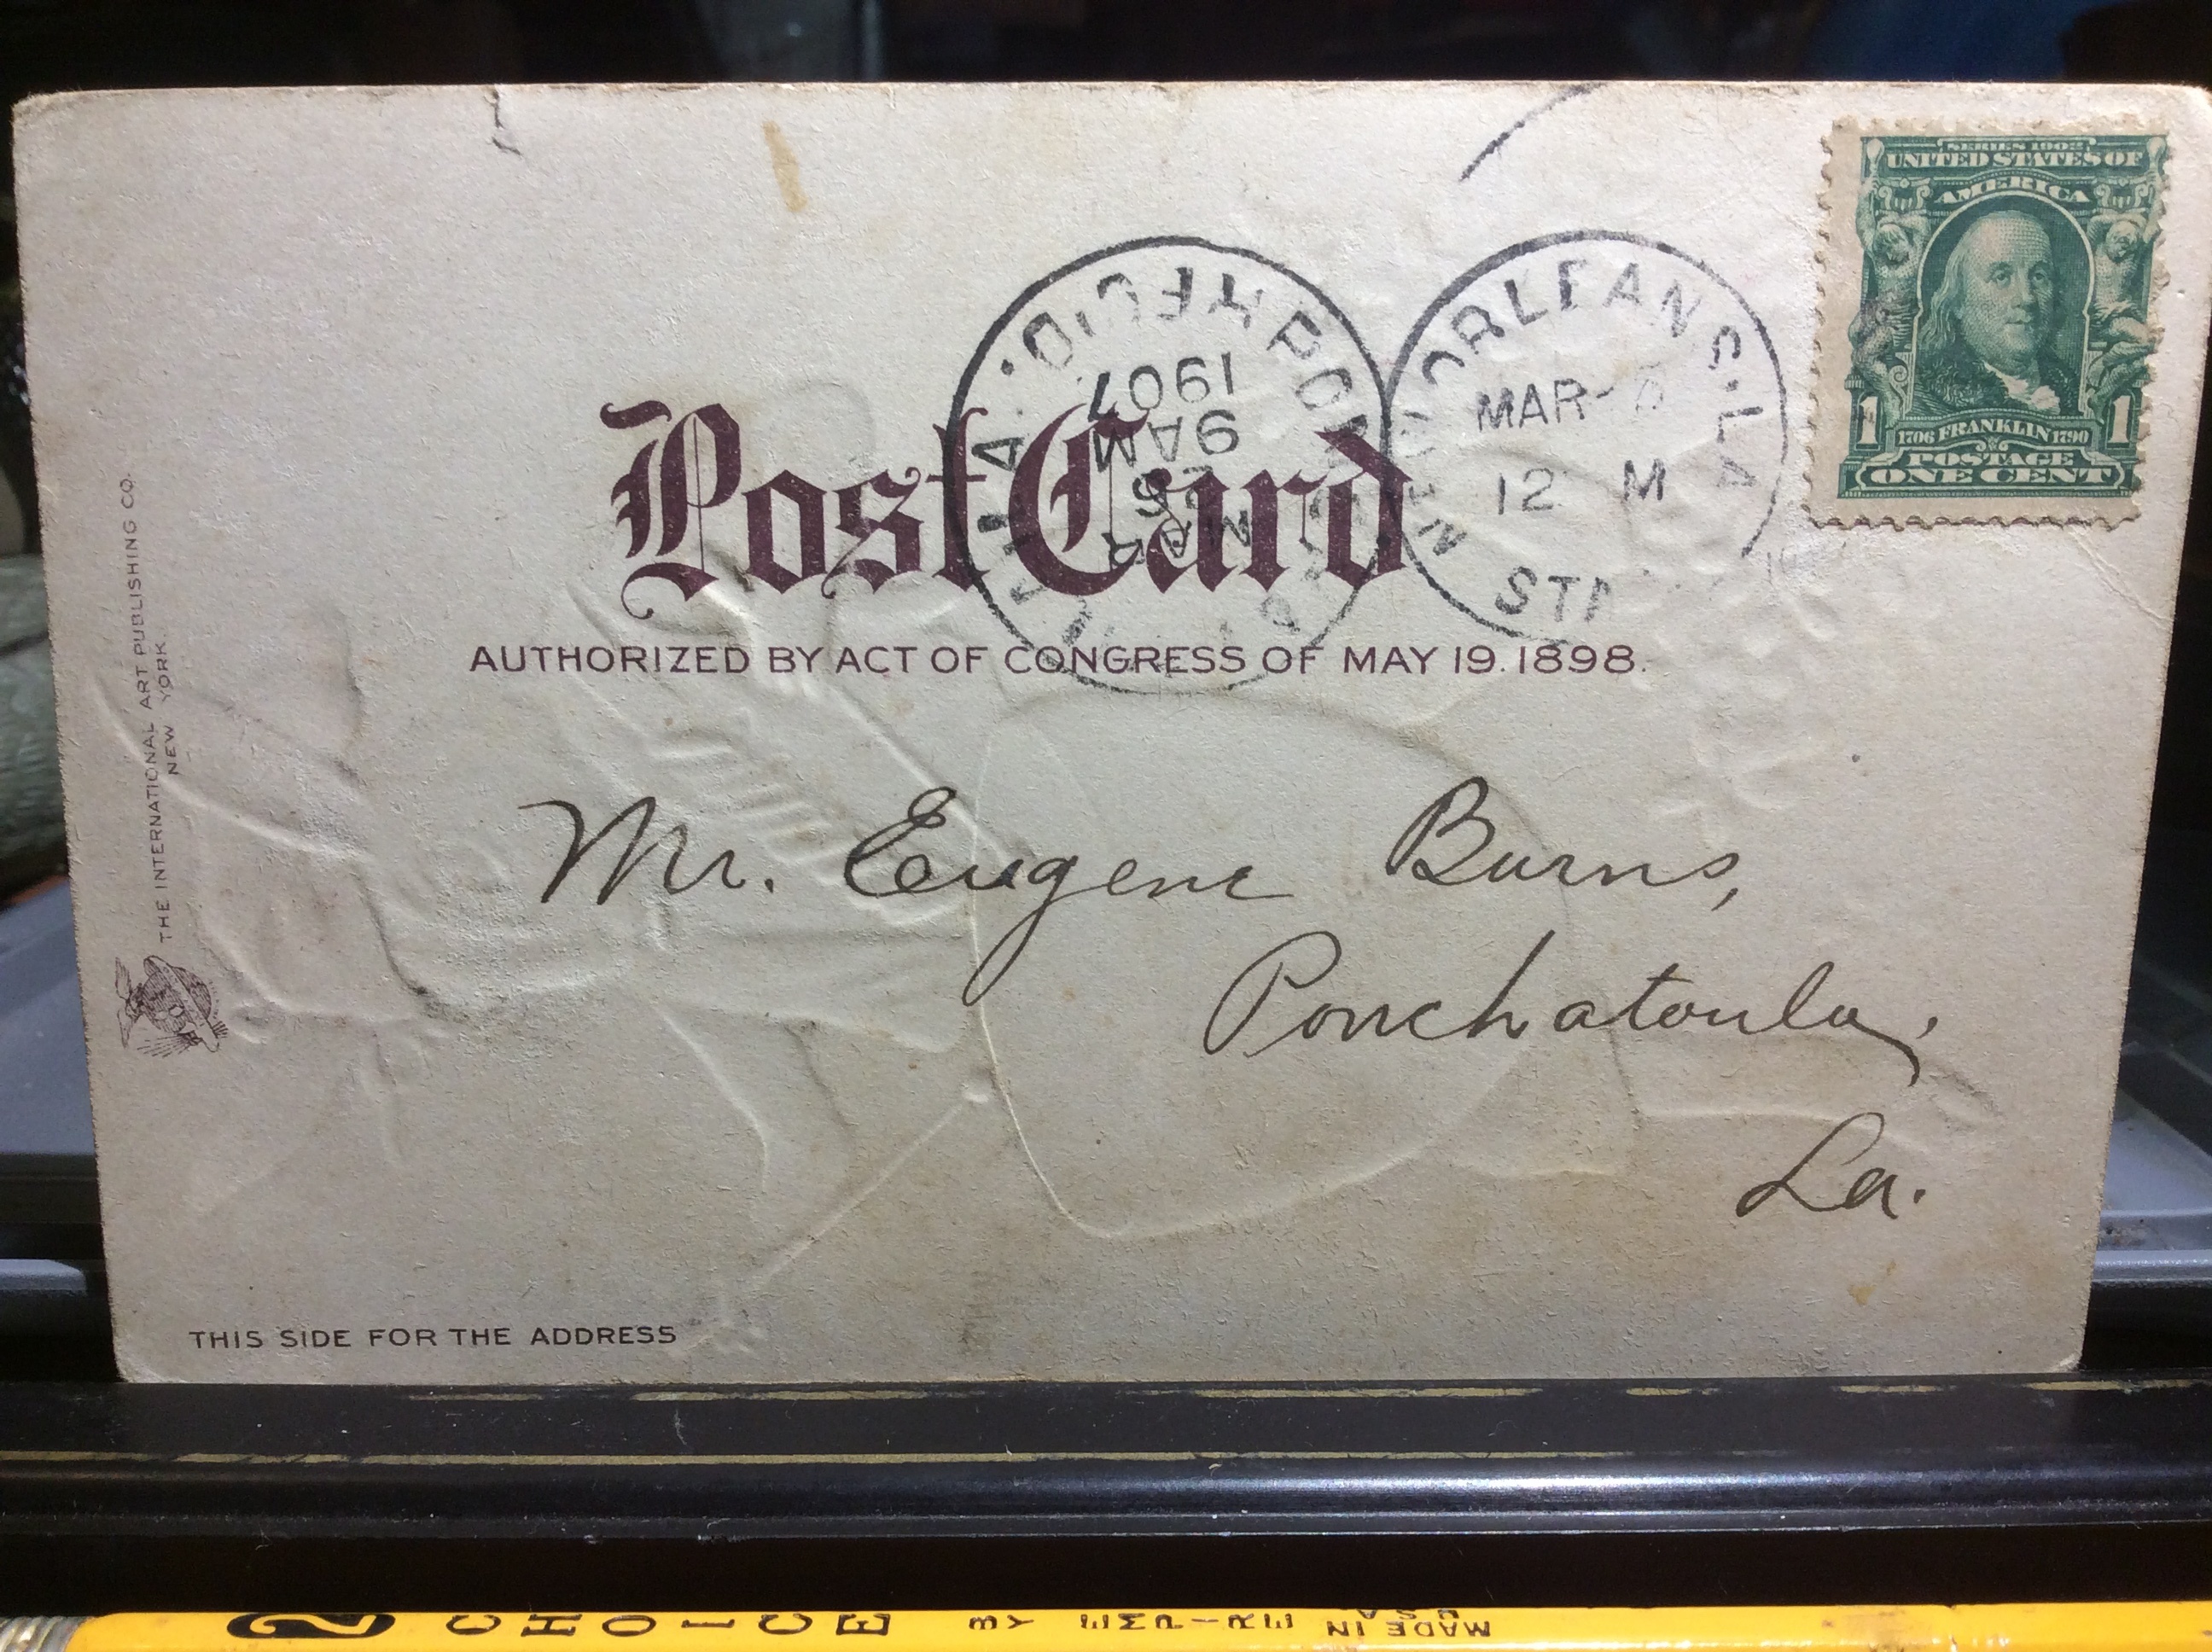 SERIES 1902
UNITED STATES OF
AMERICA
1706 FRANKLIN 1790
1 1
POSTAGE
ONE CENT
ORLEANS. LA
MAR
12 M
1907
9 AM
MAR
Post Card
AUTHORIZED BY ACT OF CONGRESS OF MAY 19. 1898.
THE INTERNATIONAL ART PUBLISHING CO.
NEW YORK.
Mr. Eugene Burns,
Ponchatoula,
La.
THIS SIDE FOR THE ADDRESS
2 CHOICE BY EMPIRE MADE IN
USA